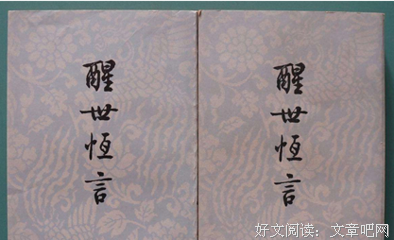 醒世恆言
醒世恆言
好文阅读：文章吧网